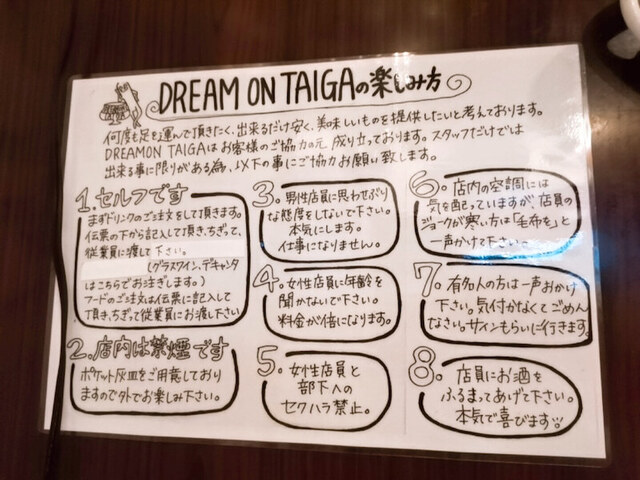 DREAM ON TAIGAの楽しみ方
何度も足を運んで頂きたく、出来るだけ安く、美味しいものを提供したいと考えております。
DREAMON TAIGAは お客様のご協力の元、成り立っております。スタッフだけでは
出来る事に限りがある為、以下の事にご協力お願い致します。
1.セルフです
まずドリンクのご注文をして頂きます。
伝票の下から記入して頂き、ちぎって、
従業員に渡して下さい。
(グラスワイン、デキャンタ
はこちらでお注ぎします。)
フードのご注文は伝票に記入して
頂き、ちぎって従業員にお渡し下さい
2.店内は禁煙です
ポケット灰皿をご用意しており
ますので外でお楽しみ下さい。
3.男性店員に思わせぶり
な態度をしないで下さい。
本気にします。
仕事になりません。
4.女性店員に年齢を
聞かないで下さい。
料金が倍になります。
5.女性店員と
部下への
セクハラ禁止。
6.店内の空調には
気を配っていますが、店員の
ジョークが寒い方は「毛布を」と
一声かけて下さい。
7.有名人の方は一声おかけ
下さい。気付かなくてごめん
なさい。サインもらいに行きます。
8.店員にお酒を
ふるまってあげて下さい。
本気で喜びます!!